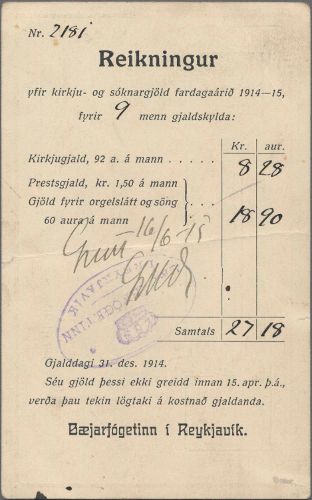 Nr. 2181
Reikningur
yfir kirkju- og sóknargjöld fardagaárið 1914—15,
fyrir 9 menn gjaldskylda:
Kr. aur.
Kirkjugjald, 92 a. á mann 8 28
Prestsgjald, kr. 1,50 á mann
Gjöld fyrir orgelslátt og söng
60 aura á mann 18 90
16/6-15
BÆJARFÓGETINN
REYKJAVÍK
Samtals 27 18
Gjalddagi 31. des. 1914.
Séu gjöld þessi ekki greidd innan 15. apr. þ.á.,
verða þau tekin lögtaki á kostnað gjaldanda.
Bæjarfógetinn í Reykjavík.